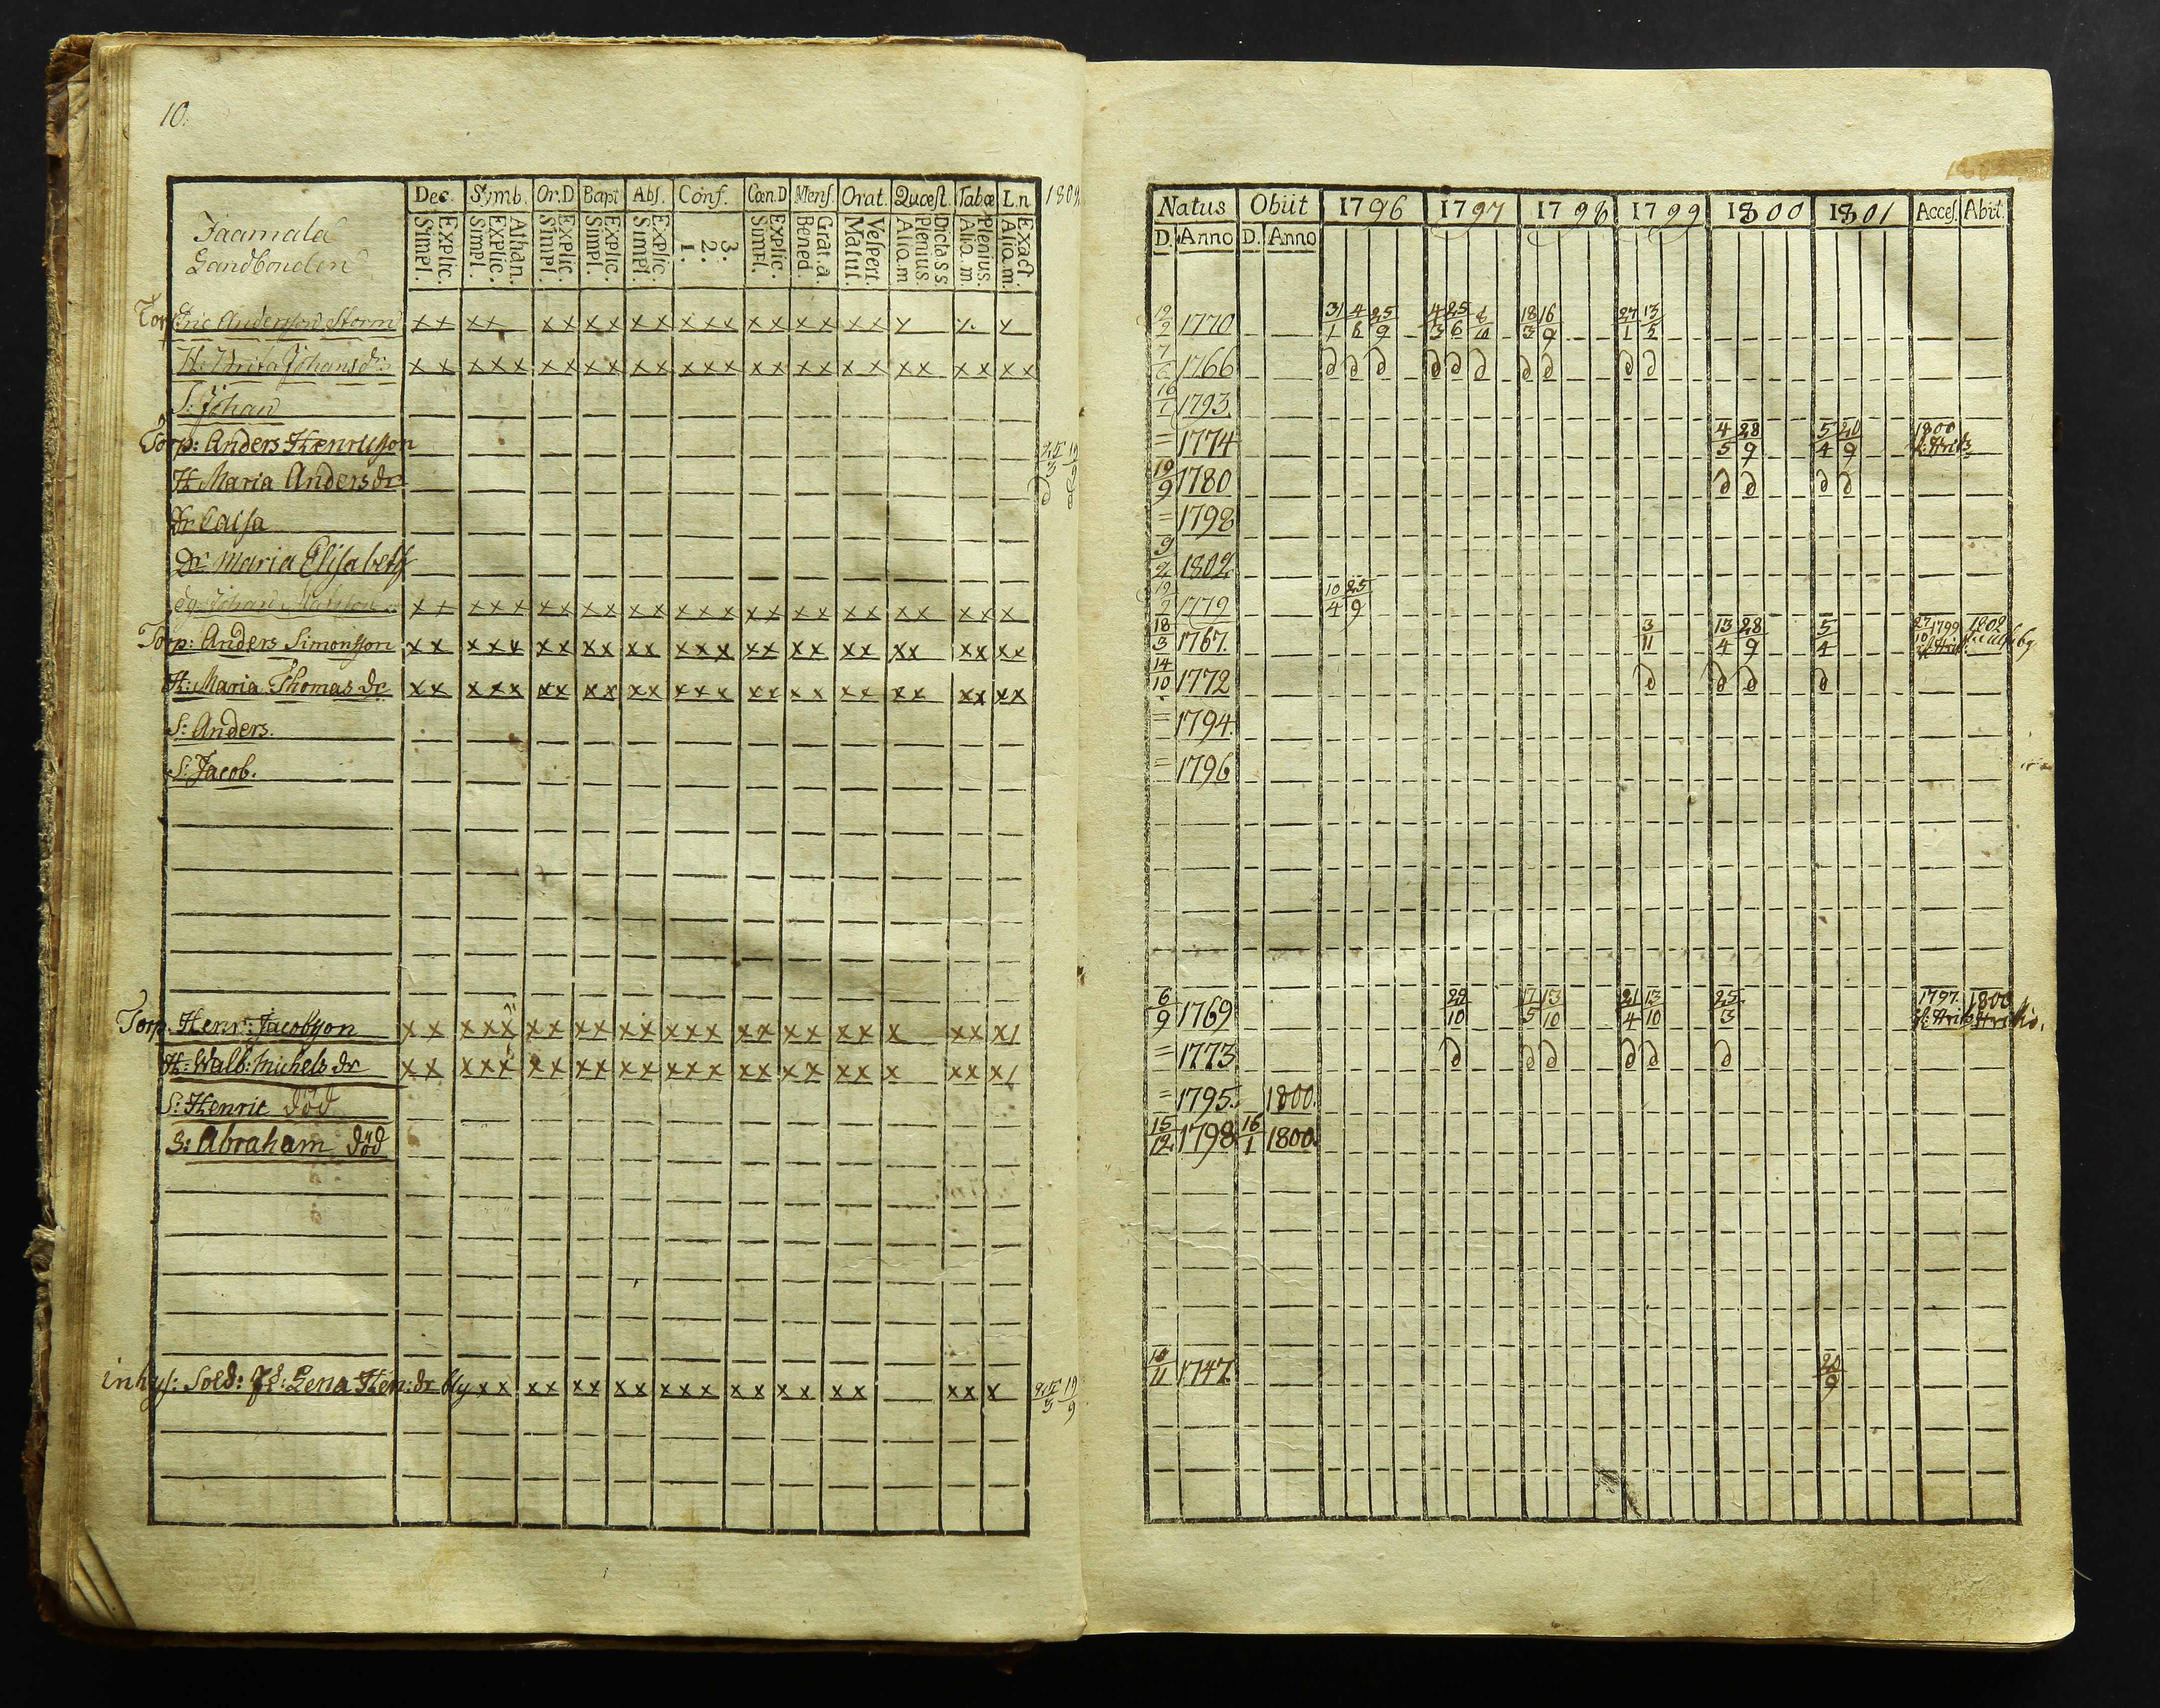 10.
Jaamala
Landbonden
Dec. Symb. Or.D Bapt Abs. Conf. Cœn.D Mens. Orat. Quæst. Tabæ L.n 1802
Explic. Simpl. Athan. Explic. Simpl. Explic. Simpl. Explic. Simpl. Explic. Simpl. 3. 2. 1. Explic. Simpl. Grat. a. Bened. Vespert. Matut. Dictass Plenius. Aliq.m Plenius. Aliq.m. Exact. Aliq.m.
Torp: Eric Andersson Storm x x x x x x x x x x x x x x x x x x x x x x x
H: Brita Johansdr: x x x x x x x x x x x x x x x x x x x x x x x x x x
S: Johan
Torp: Anders Henricsson 25/3 19/9
H Maria Andersdr
dr Caisa
Dr Maria Elisabeth
dg: Johan Matsson x x x x x x x x x x x x x x x x x x x x x x x x x
Torp: Anders Simonsson x x x x x x x x x x x x x x x x x x x x x x x x x x
H: Maria Thomas dr x x x x x x x x x x x x x x x x x x x x x x x x x x
S: Anders.
S: Jacob.
Torp. Henr: Jacobsson x x x x x x x x x x x x x x x x x x x x x x x x x /
H: Walb: Michels dr x x x x x x x x x x x x x x x x x x x x x x x x x /
S: Henric död
S: Abraham död
inhys: Sold: Lena Hen: dr x x x x x x x x x x x x x x x x x x x x 25/3 19/9
Natus Obiit 1796 1797 1798 1799 1800 1801 Acces. Abit.
D. Anno D. Anno
1770 31/1 4/6 25/9 4/3 25/6 18/3 16/9 27/1 13/5
1766 d d d d d d d d d d
16/1 1793
= 1774 4/5 28/9 5/4 20/9 1800
19/9 1780 d d d d
= 1798
9/2 1802
1779 10/4 25/9
18/3 1767. 3/11 13/4 28/9 5/4 27/10 1799 1802
14/10 1772 d d d d
= 1794.
= 1796
6/9 1769 29/10 17/5 13/10 21/4 13/10 25/3 1797. 1800
= 1773 d d d d d d
= 1795. 1800.
15/12 1798 16/1 1800.
10/11 1747 20/9